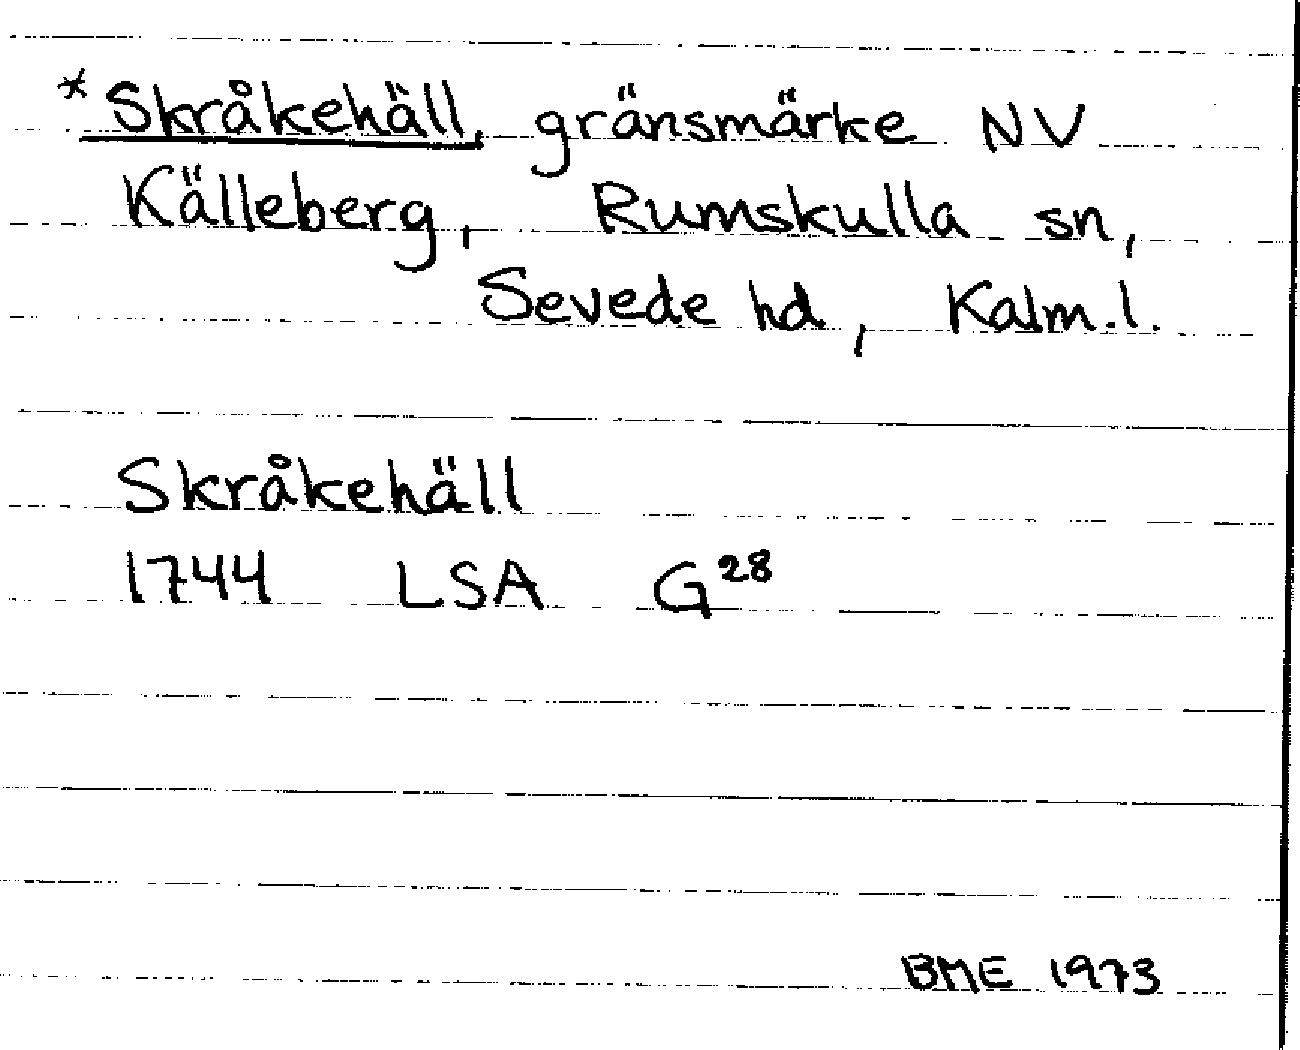 *Skråkehäll, gränsmärke NV
Källeberg, Rumskulla sn,
Sevede hd, Kalm.l.
Skråkehäll
1744 LSA G28
BME 1973